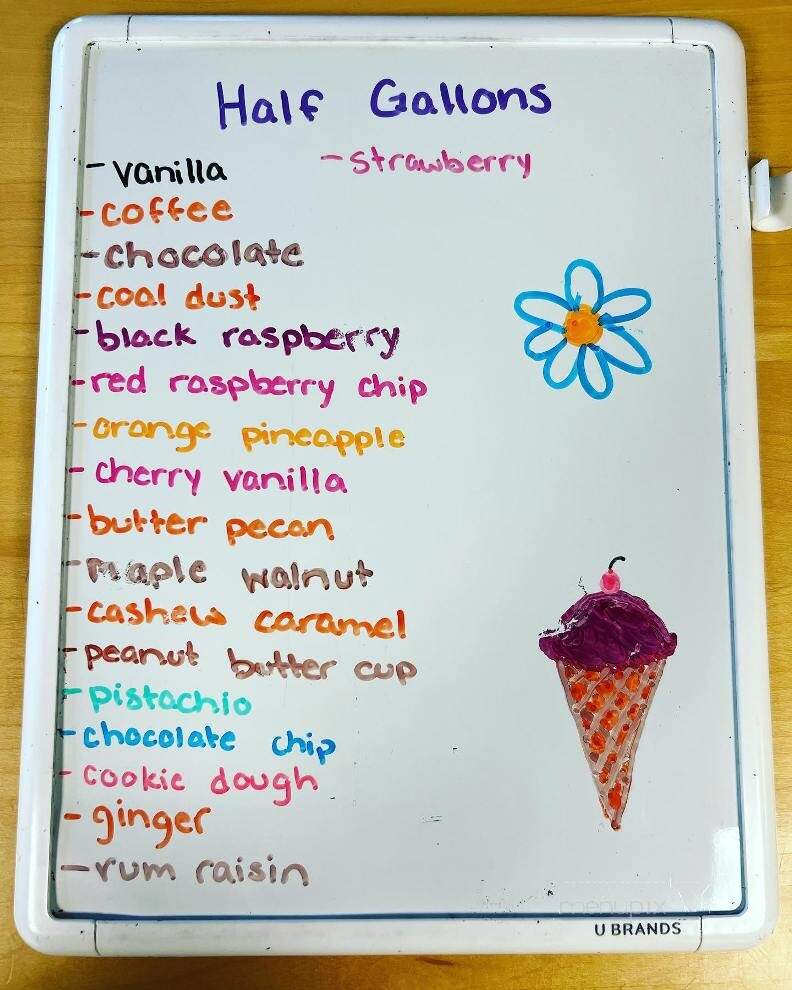 Half Gallons
- vanilla
- strawberry
- coffee
- chocolate
- coal dust
- black raspberry
- red raspberry chip
- orange pineapple
- cherry vanilla
- butter pecan
- maple walnut
- cashew caramel
- peanut butter cup
- pistachio
- chocolate chip
- cookie dough
- ginger
- rum raisin
menupix
U BRANDS